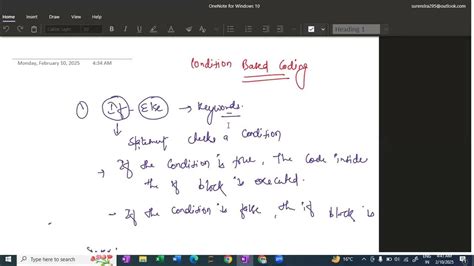 OneNote for Windows 10
surendra295@outlook.com
Heading 1
Monday, February 10, 2025 4:34 AM
Condition Based Coding
① If - Else → Keywords.
Statement checks a Condition
→ If the Condition is true, The Code inside
the if block is executed.
- If the Condition is false, the if block is
Type here to search
16°C
ENG
4:47 AM
2/10/2025